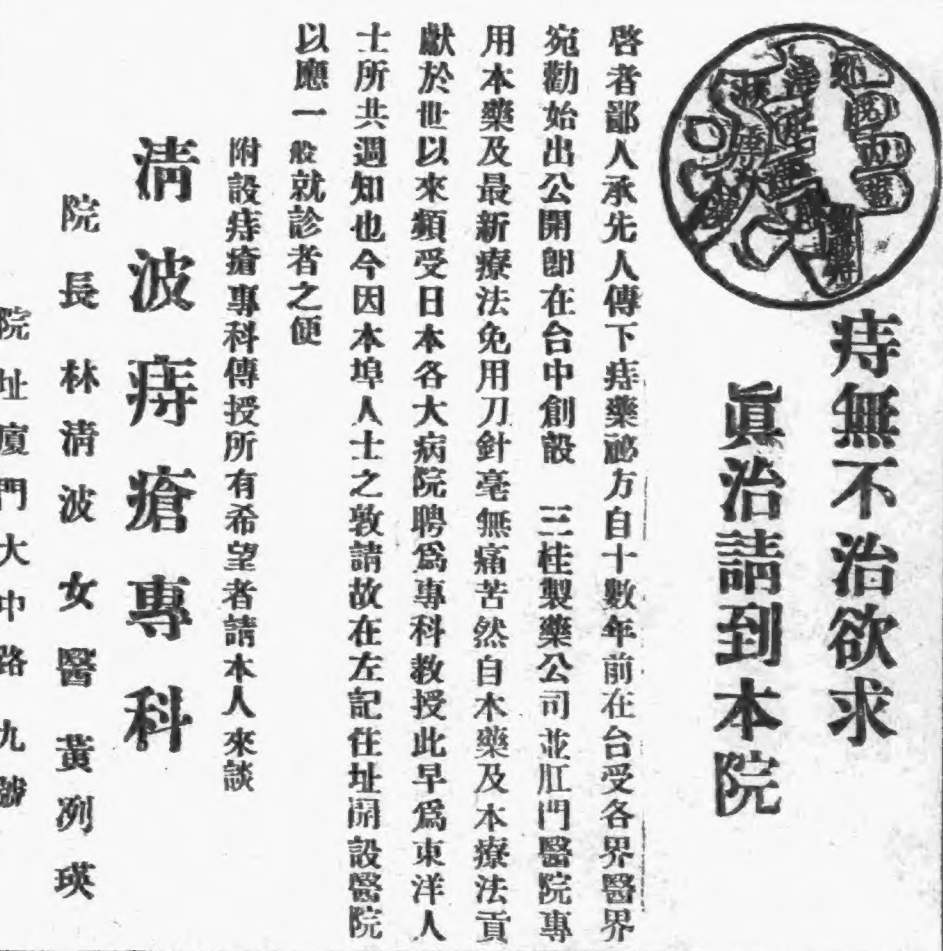 痔無不治欲求
眞治請到本院
啓者鄙人承先人傳下痔藥祕方自十數年前在台受各界醫界
宛勸始出公開卽在台中創設 三桂製藥公司並肛門醫院專
用本藥及最新療法免用刀針毫無痛苦然自木藥及本療法貢
獻於世以來頻受日本各大病院聘爲專科教授此早爲東洋人
士所共週知也今因本埠人士之敦請故在左記住址開設醫院
以應一般就診者之便
附設痔瘡專科傳授所有希望者請本人來談
淸波痔瘡專科
院長 林淸波 女醫 黃冽瑛
院址廈門大中路九號